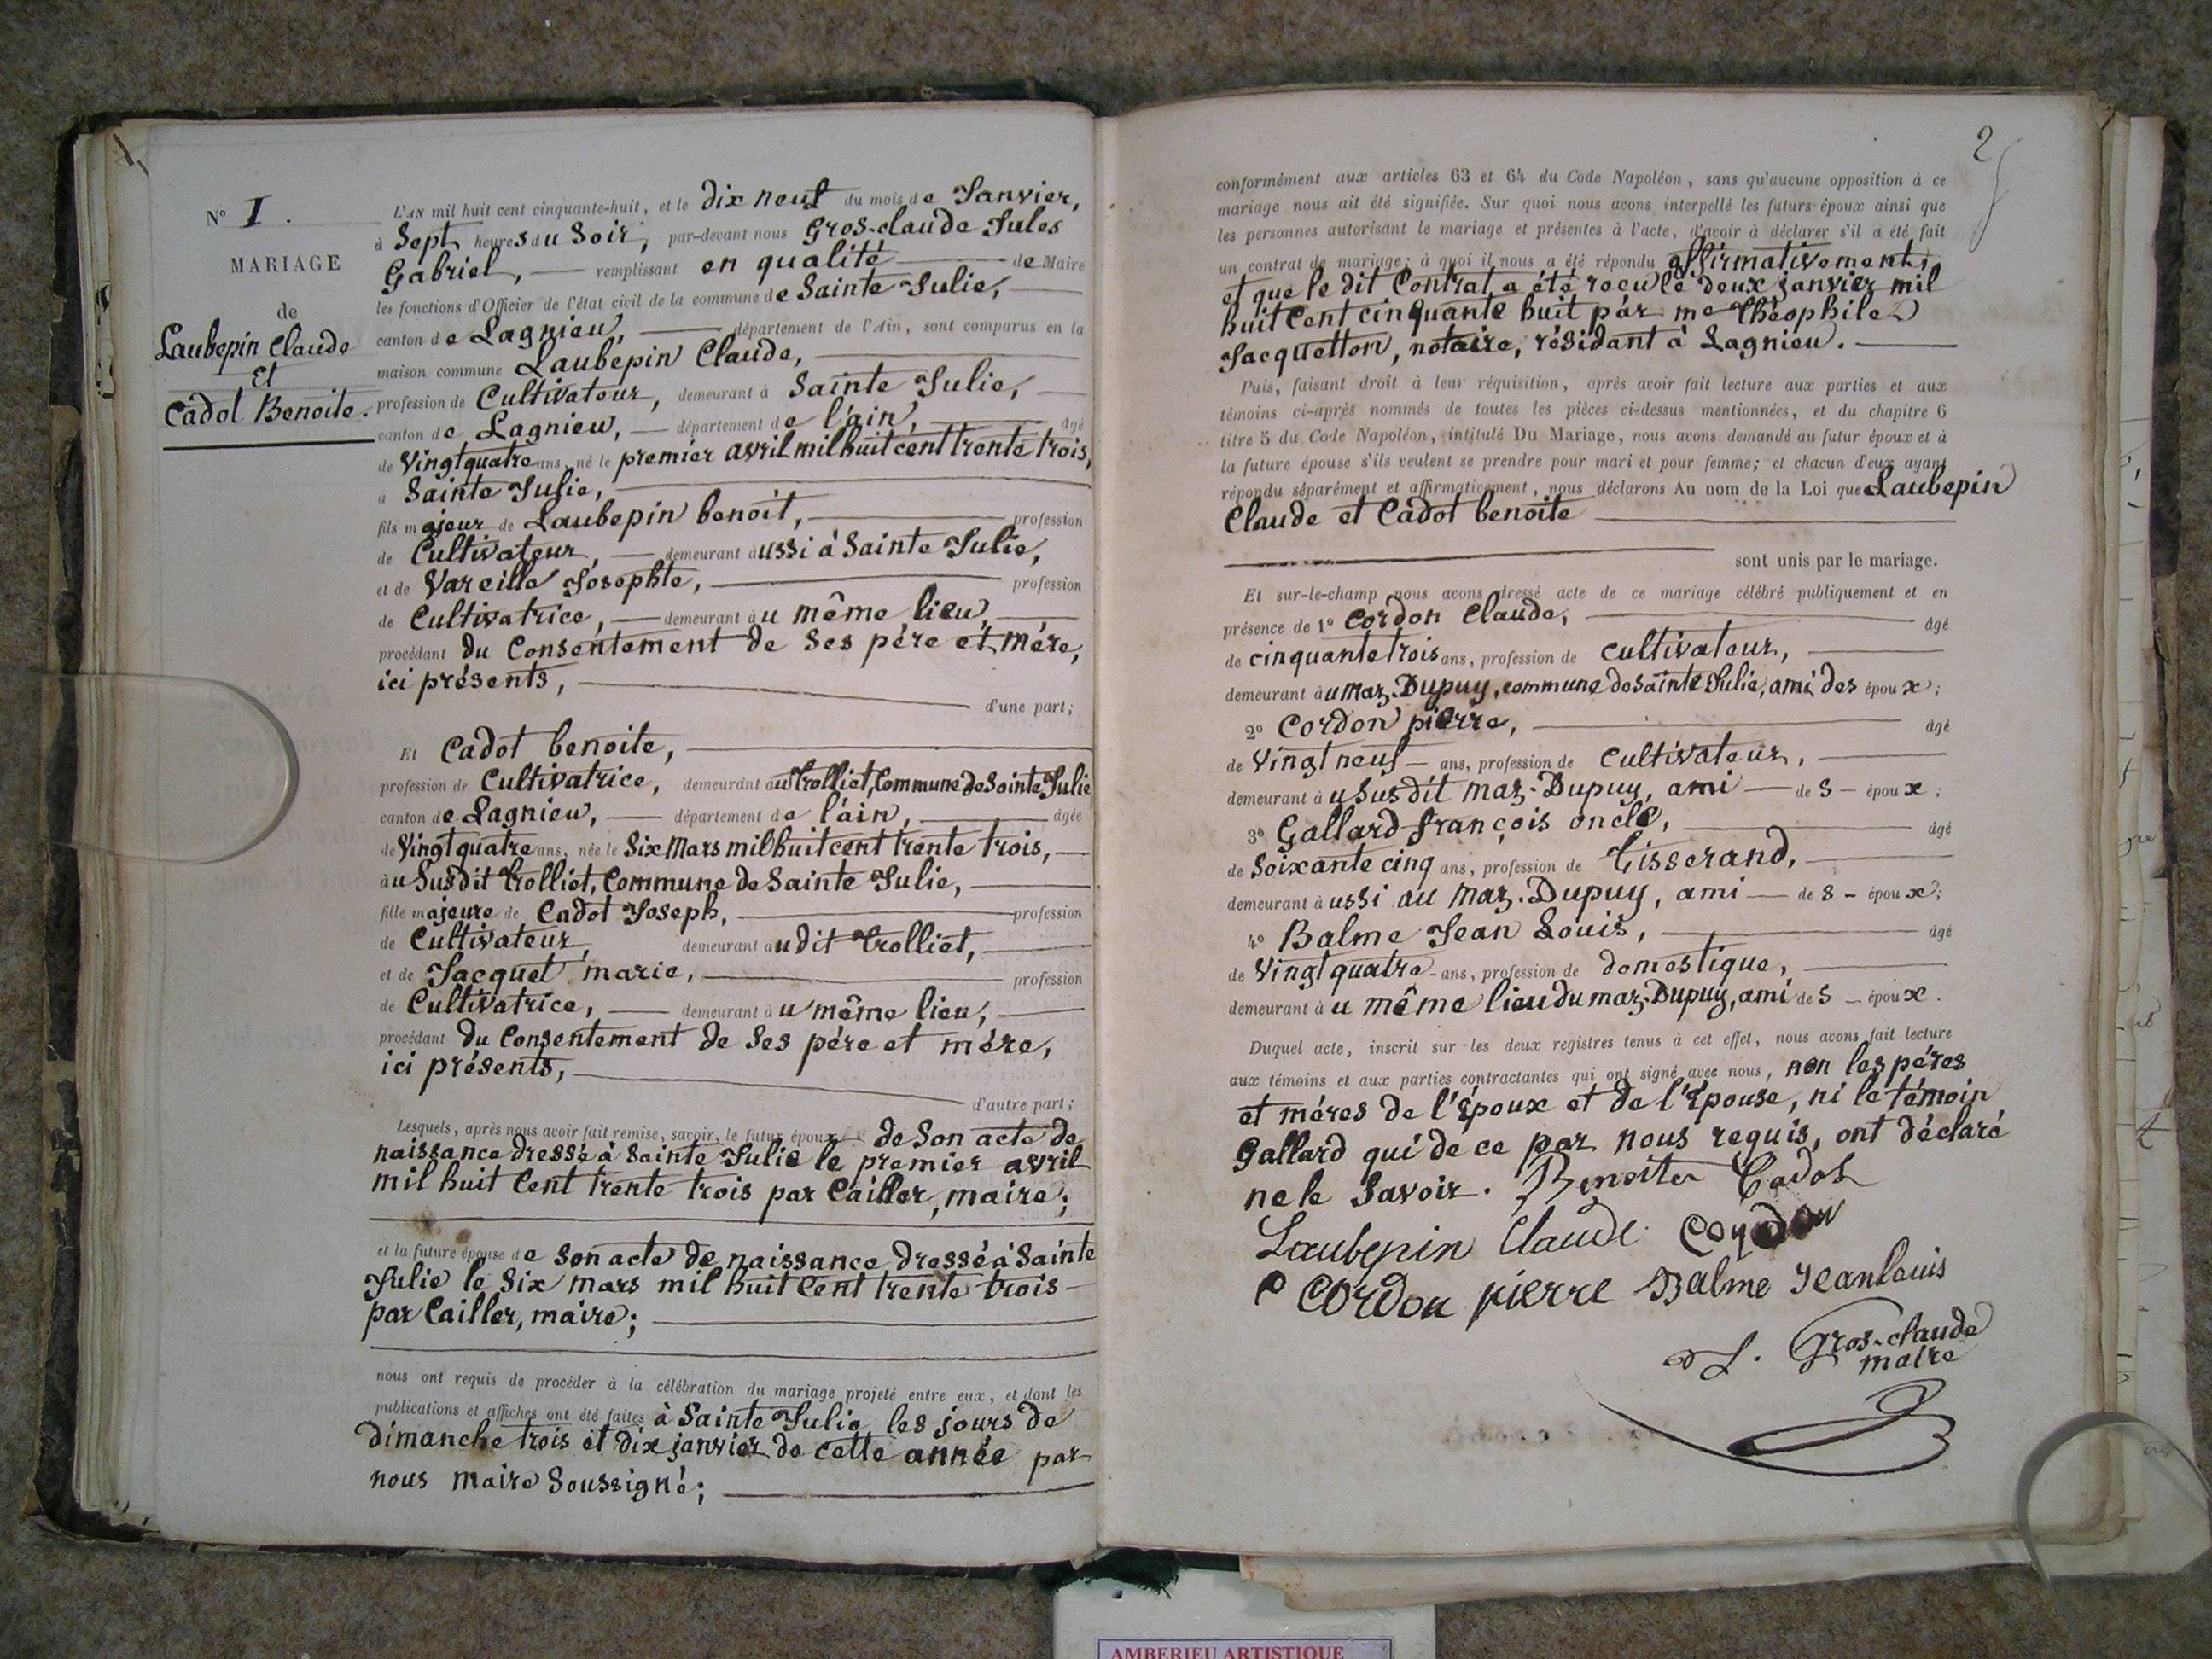 N° 1.
MARIAGE
de
Laubepin Claude
Et
Cadot Benoite.
L'AN mil huit cent cinquante-huit, et le dix neuf du mois de Janvier,
à Sept heures du Soir, par-devant nous Gros-claude Jules
Gabriel, remplissant en qualité de Maire
les fonctions d'Officier de l'état civil de la commune de Sainte Julie,
canton de Lagnieu, département de l'Ain, sont comparus en la
maison commune Laubepin Claude,
profession de Cultivateur, demeurant à Sainte Julie,
canton de Lagnieu, département de l'ain, âgé
de Vingt quatre ans, né le premier avril mil huit cent trente trois,
à Sainte Julie,
fils majeur de Laubepin benoit, profession
de Cultivateur, demeurant aussi à Sainte Julie,
et de Vareille Josephte, profession
de Cultivatrice, demeurant au même lieu,
procédant du Consentement de Ses père et Mère,
ici présents,
d'une part;
Et Cadot benoite,
profession de Cultivatrice, demeurant au trolliet, Commune de Sainte Julie
canton de Lagnieu, département de l'ain, âgée
de Vingt quatre ans, née le Six Mars mil huit cent trente trois,
au Susdit trolliet, Commune de Sainte Julie,
fille majeure de Cadot Joseph, profession
de Cultivateur, demeurant audit trolliet,
et de Jacquet marie, profession
de Cultivatrice, demeurant au même lieu,
procédant du Consentement de Ses père et mère,
ici présents,
d'autre part;
Lesquels, après nous avoir fait remise, savoir, le futur époux de Son acte de
naissance dressé à Sainte Julie le premier avril
mil huit Cent trente trois par Cailler, maire;
et la future épouse de Son acte de naissance dressé à Sainte
Julie le Six mars mil huit Cent trente trois
par Cailler, maire;
nous ont requis de procéder à la célébration du mariage projeté entre eux, et dont les
publications et affiches ont été faites à Sainte Julie les jours de
dimanche trois et dix janvier de cette année par
nous maire Soussigné;
2
conformément aux articles 63 et 64 du Code Napoléon, sans qu'aucune opposition à ce
mariage nous ait été signifiée. Sur quoi nous avons interpellé les futurs époux ainsi que
les personnes autorisant le mariage et présentes à l'acte, d'avoir à déclarer s'il a été fait
un contrat de mariage; à quoi il nous a été répondu affirmativement,
et que le dit Contrat a été reçu le deux janvier mil
huit Cent cinquante huit par me théophile
Jacquetton, notaire, résidant à Lagnieu.
Puis, faisant droit à leur réquisition, après avoir fait lecture aux parties et aux
témoins ci-après nommés de toutes les pièces ci-dessus mentionnées, et du chapitre 6
titre 5 du Code Napoléon, intitulé Du Mariage, nous avons demandé au futur époux et à
la future épouse s'ils veulent se prendre pour mari et pour femme; et chacun d'eux ayant
répondu séparément et affirmativement, nous déclarons Au nom de la Loi que Laubepin
Claude et Cadot benoite
sont unis par le mariage.
Et sur-le-champ nous avons dressé acte de ce mariage célébré publiquement et en
présence de 1° Cordon Claude, âgé
de cinquante trois ans, profession de Cultivateur,
demeurant au maz-Dupuy, commune de Sainte Julie, ami des époux;
2° Cordon pierre, âgé
de Vingt neuf ans, profession de Cultivateur,
demeurant au Susdit maz-Dupuy, ami des époux;
3° Gallard françois oncle, âgé
de Soixante cinq ans, profession de Tisserand,
demeurant aussi au maz-Dupuy, ami des époux;
4° Balme Jean Louis, âgé
de Vingt quatre ans, profession de domestique,
demeurant au même lieu du maz-Dupuy, ami des époux.
Duquel acte, inscrit sur les deux registres tenus à cet effet, nous avons fait lecture
aux témoins et aux parties contractantes qui ont signé avec nous, non les pères
et mères de l'Époux et de l'Épouse, ni le témoin
Gallard qui de ce par nous requis, ont déclaré
ne le Savoir. Benoite Cadot
Laubepin Claude Cordon
Cordon pierre Balme Jean louis
Gros-claude
maire
AMBERIEU ARTISTIQUE